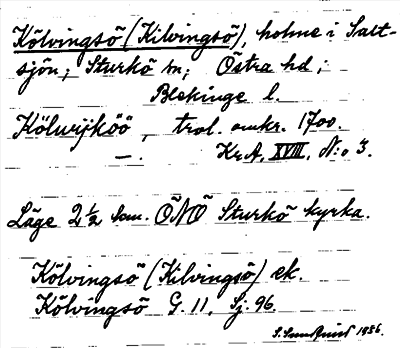 Kölvingsö (Kilvingsö), holme i Salt-
sjön; Sturkö sn; Östra hd;
Blekinge l.
Kölwijköö, trol. omkr. 1700.
—. Kr.A. XVIII. N:o 3.
Läge 2½ km. ÖNÖ Sturkö kyrka.
Kölvingsö (Kilvingsö) ek.
Kölvingsö G. 11, Sj. 96.
1926.